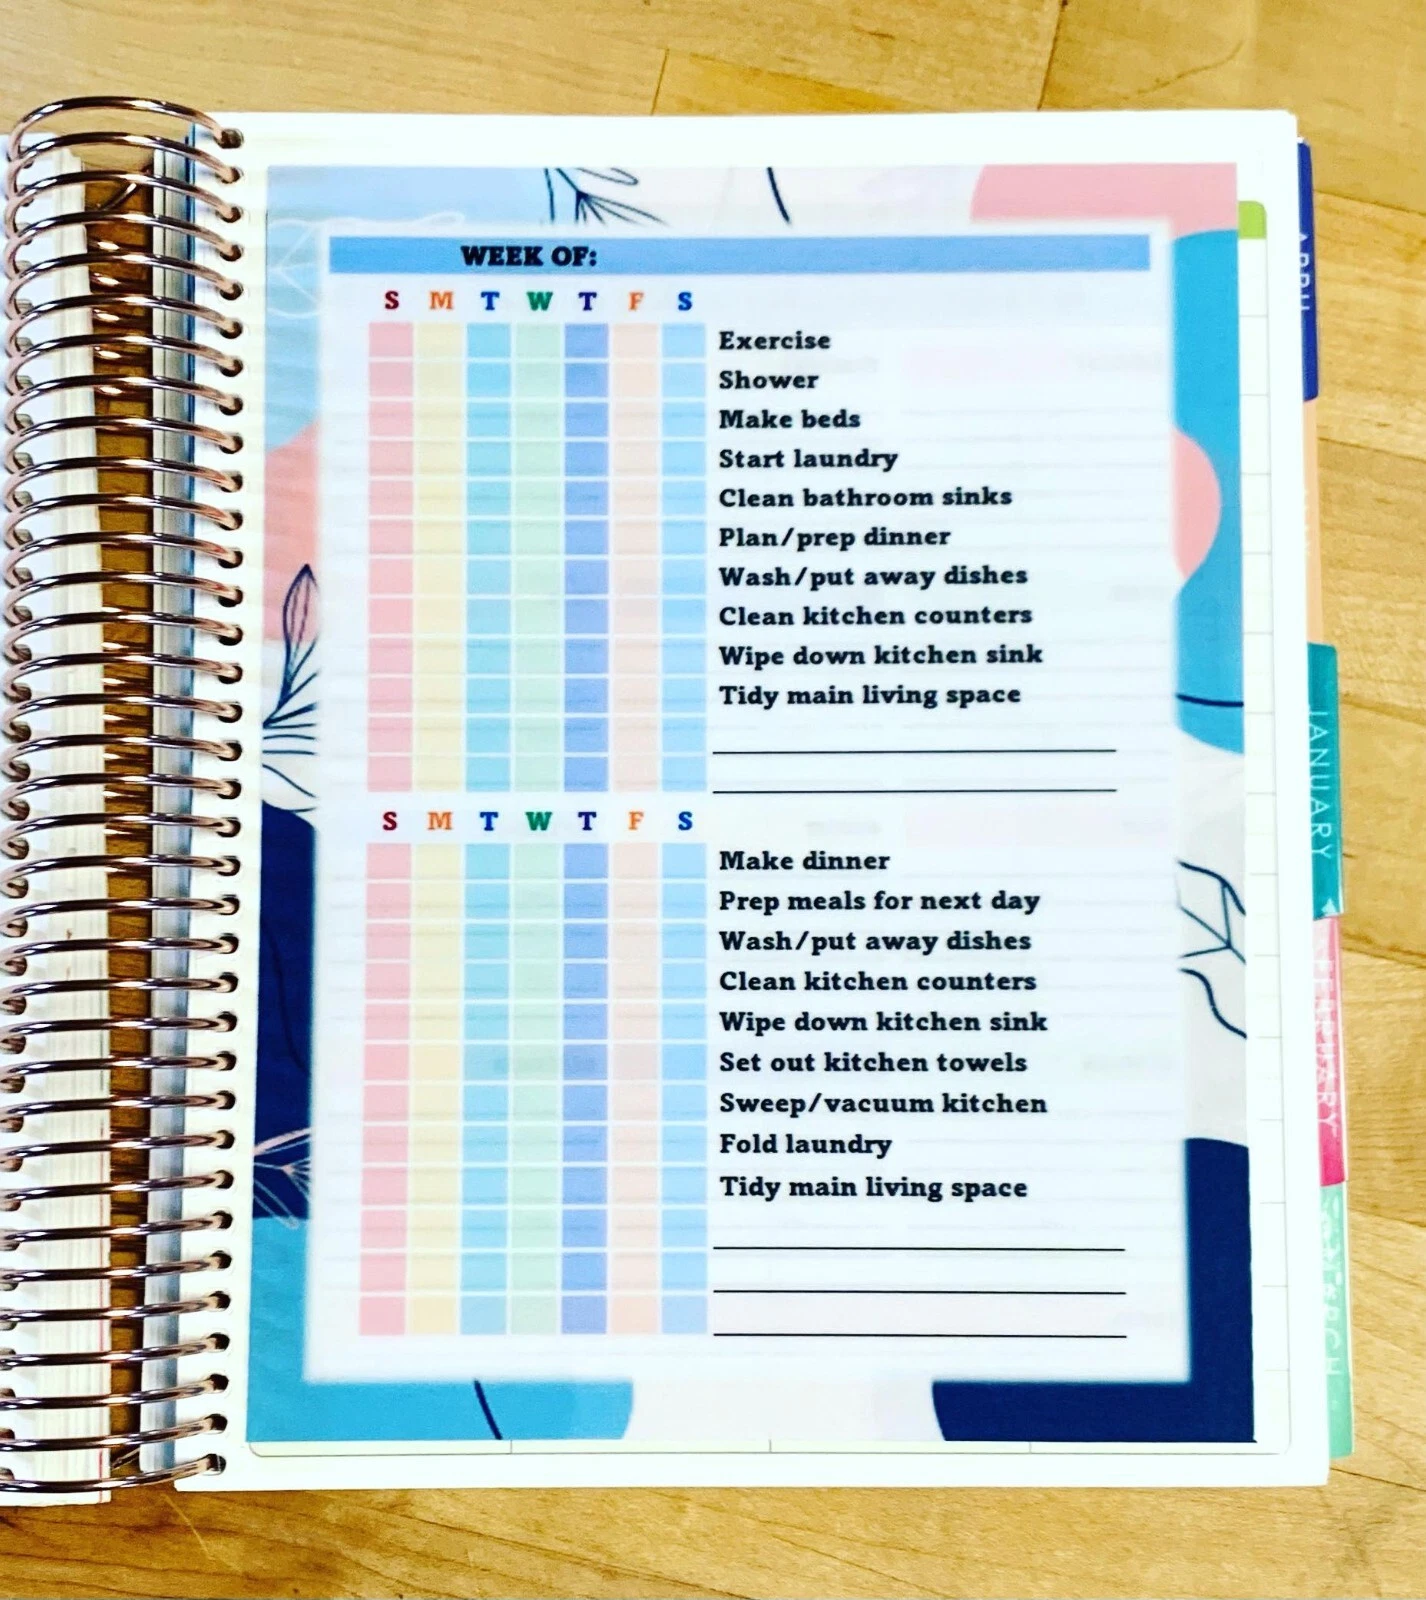 WEEK OF:
S M T W T F S
Exercise
Shower
Make beds
Start laundry
Clean bathroom sinks
Plan/prep dinner
Wash/put away dishes
Clean kitchen counters
Wipe down kitchen sink
Tidy main living space
S M T W T F S
Make dinner
Prep meals for next day
Wash/put away dishes
Clean kitchen counters
Wipe down kitchen sink
Set out kitchen towels
Sweep/vacuum kitchen
Fold laundry
Tidy main living space
JANUARY
FEBRUARY
MARCH